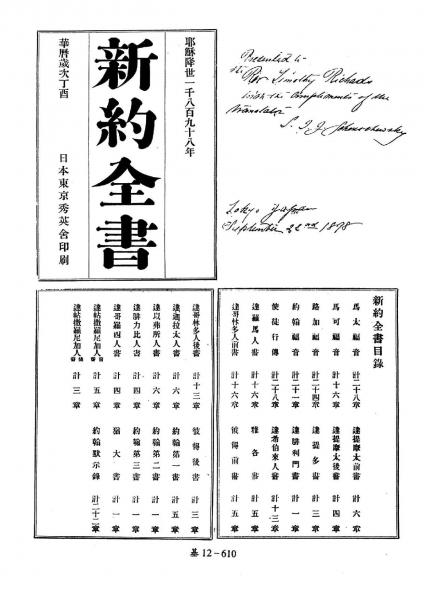 耶穌降世一千八百九十八年
新約全書
華曆歲次丁酉
日本東京秀英舍印刷
Presented to
the Rev Timothy Richard
with the compliments of the
translator
S. I. J. Schereschewsky
Tokyo Japan
September 22nd 1898
新約全書目錄
馬太福音 計二十八章 達提摩太前書 計六章
馬可福音 計十六章 達提摩太後書 計四章
路加福音 計二十四章 達提多書 計三章
約翰福音 計二十一章 達腓利門書 計一章
使徒行傳 計二十八章 達希伯來人書 計十三章
達羅馬人書 計十六章 雅各書 計五章
達哥林多人前書 計十六章 彼得前書 計五章
達哥林多人後書 計十三章 彼得後書 計三章
達迦拉太人書 計六章 約翰第一書 計五章
達以弗所人書 計六章 約翰第二書 計一章
達腓力比人書 計四章 約翰第三書 計一章
達哥羅西人書 計四章 猶大書 計一章
達帖撒羅尼加人前書 計五章 約翰默示錄 計二十二章
達帖撒羅尼加人後書 計三章
基 12-610